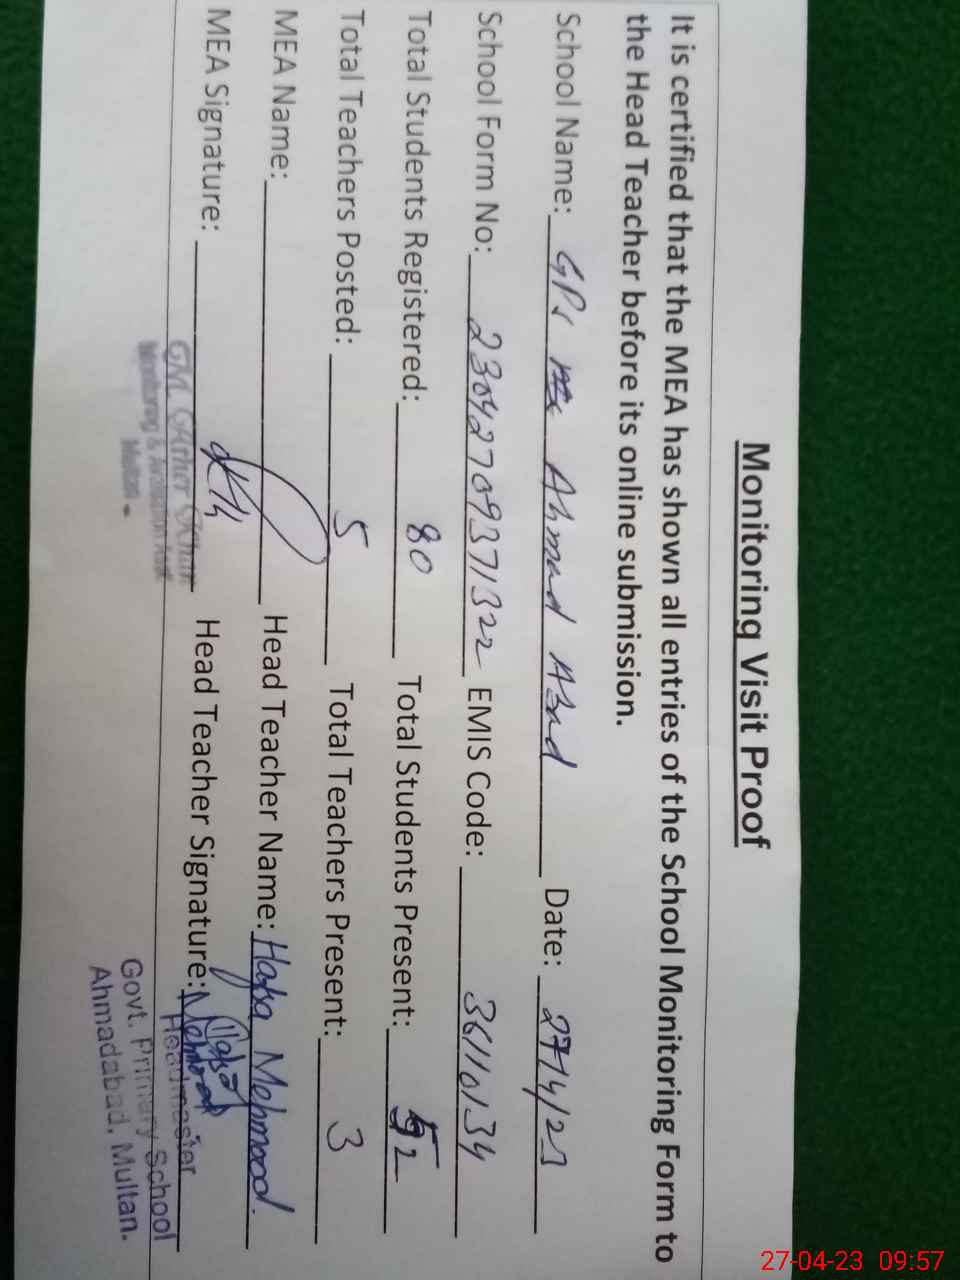 Monitoring Visit Proof
It is certified that the MEA has shown all entries of the School Monitoring Form to
the Head Teacher before its online submission.
School Name: GPS Ahmad Abad Date: 27/4/23
School Form No: 23042709371322 EMIS Code: 36110134
Total Students Registered: 80 Total Students Present: 52
Total Teachers Posted: 5 Total Teachers Present: 3
MEA Name: Head Teacher Name: Hafsa Mehmood.
MEA Signature: Head Teacher Signature: Hafsa Mehmood
Headmaster
Govt. Primary School
Ahmadabad, Multan.
Monitoring &
Multan
27-04-23 09:57